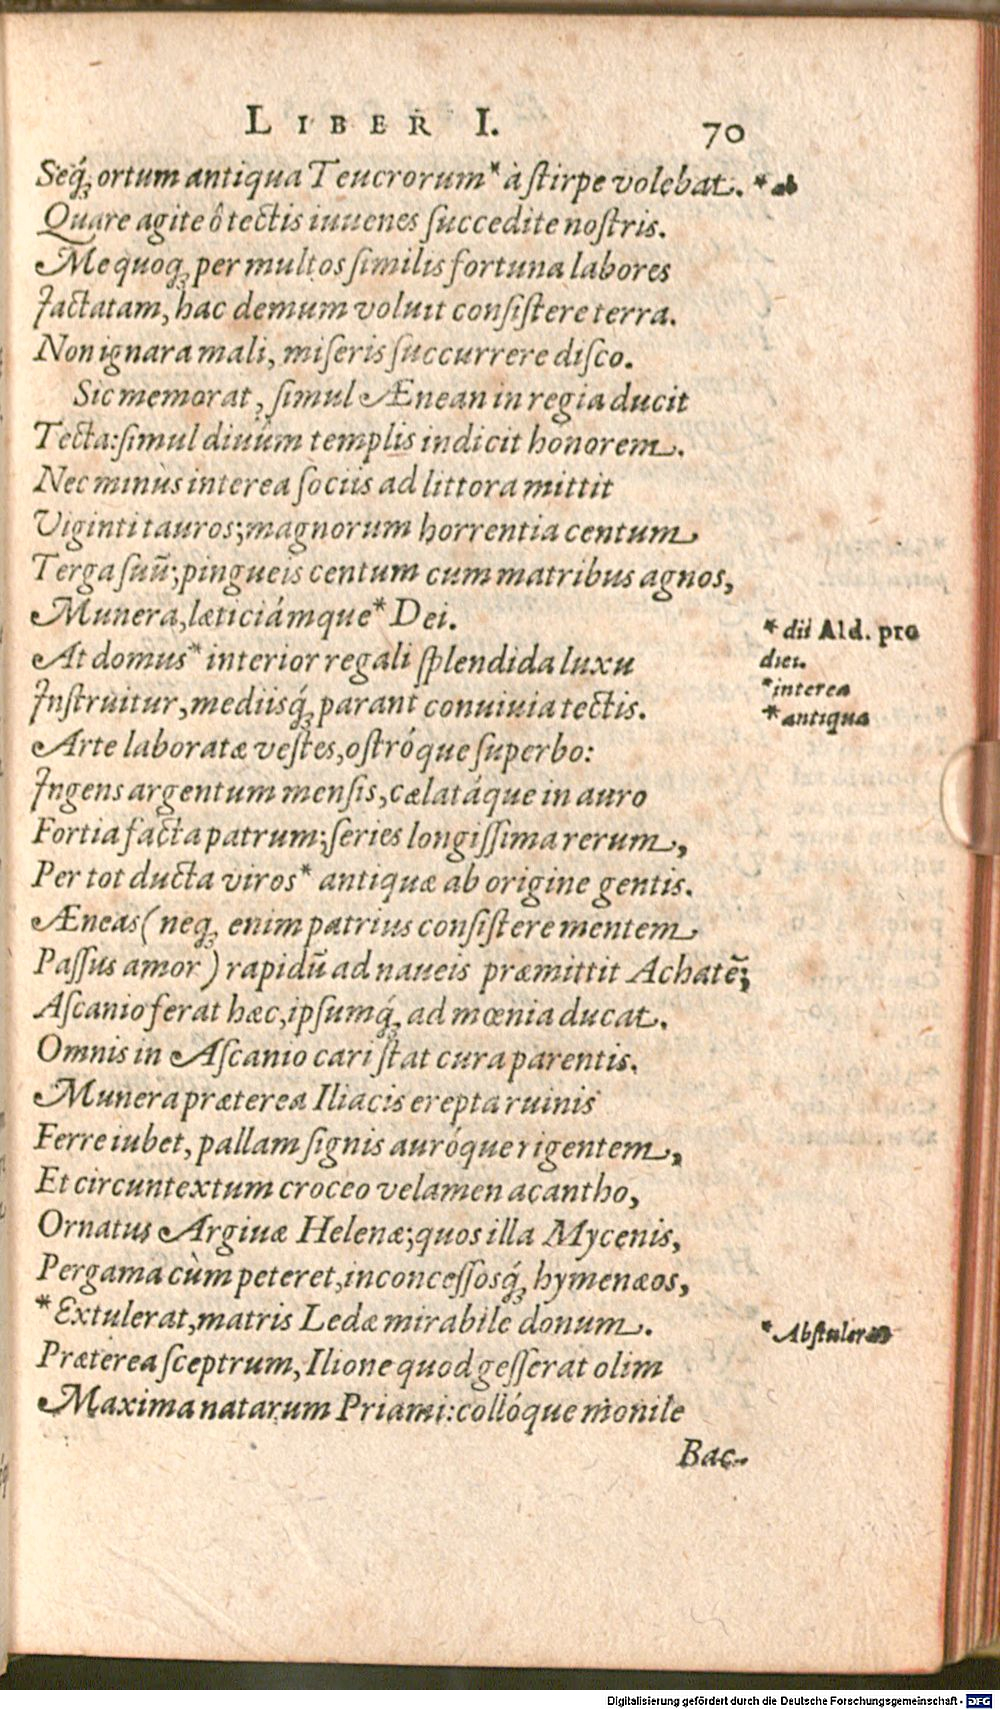 LIBER I. 70
Seq́ꝫ ortum antiqua Teucrorum* à ſtirpe volebat. *ab
Quare agite ô tectis iuuenes ſuccedite noſtris.
Me quoqꝫ per multos ſimilis fortuna labores
Jactatam, hac demum voluit conſiſtere terra.
Non ignara mali, miſeris ſuccurrere diſco.
Sic memorat, ſimul Ænean in regia ducit
Tecta: ſimul diuûm templis indicit honorem.
Nec minùs interea ſociis ad littora mittit
Viginti tauros; magnorum horrentia centum
Terga ſuũ; pingueis centum cum matribus agnos,
Munera, læticiámque* Dei.
*dii Ald. pro
diei.
At domus* interior regali ſplendida luxu
*interea
Jnſtruitur, mediisq́ꝫ parant conuiuia tectis.
*antiqua
Arte laboratæ veſtes, oſtróque ſuperbo:
Jngens argentum menſis, cælatáque in auro
Fortia facta patrum; ſeries longiſſima rerum,
Per tot ducta viros* antiquæ ab origine gentis.
Æneas (neqꝫ enim patrius conſiſtere mentem
Paſſus amor) rapidũ ad naueis præmittit Achatẽ;
Aſcanio ferat hæc, ipſumq́ꝫ ad mœnia ducat.
Omnis in Aſcanio cari ſtat cura parentis.
Munera præterea Iliacis erepta ruinis
Ferre iubet, pallam ſignis auróque rigentem,
Et circuntextum croceo velamen acantho,
Ornatus Argiuæ Helenæ; quos illa Mycenis,
Pergama cùm peteret, inconceſſosq́ꝫ hymenæos,
*Extulerat, matris Ledæ mirabile donum.
*Abſtulerat
Præterea ſceptrum, Ilione quod geſſerat olim
Maxima natarum Priami: collóque monile
Bac-
Digitalisierung gefördert durch die Deutsche Forschungsgemeinschaft - DFG